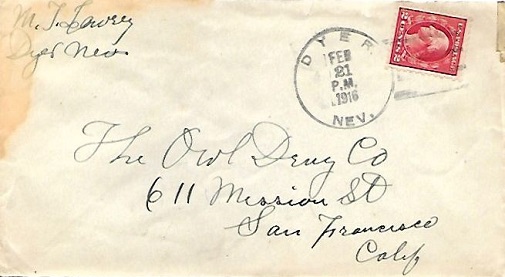 M. T. Lowry
Dyer Nev
DYER
FEB
21
P.M.
1916
NEV.
U.S. POSTAGE
2 CENTS 2
The Owl Drug Co
611 Mission St
San Francisco
Calif